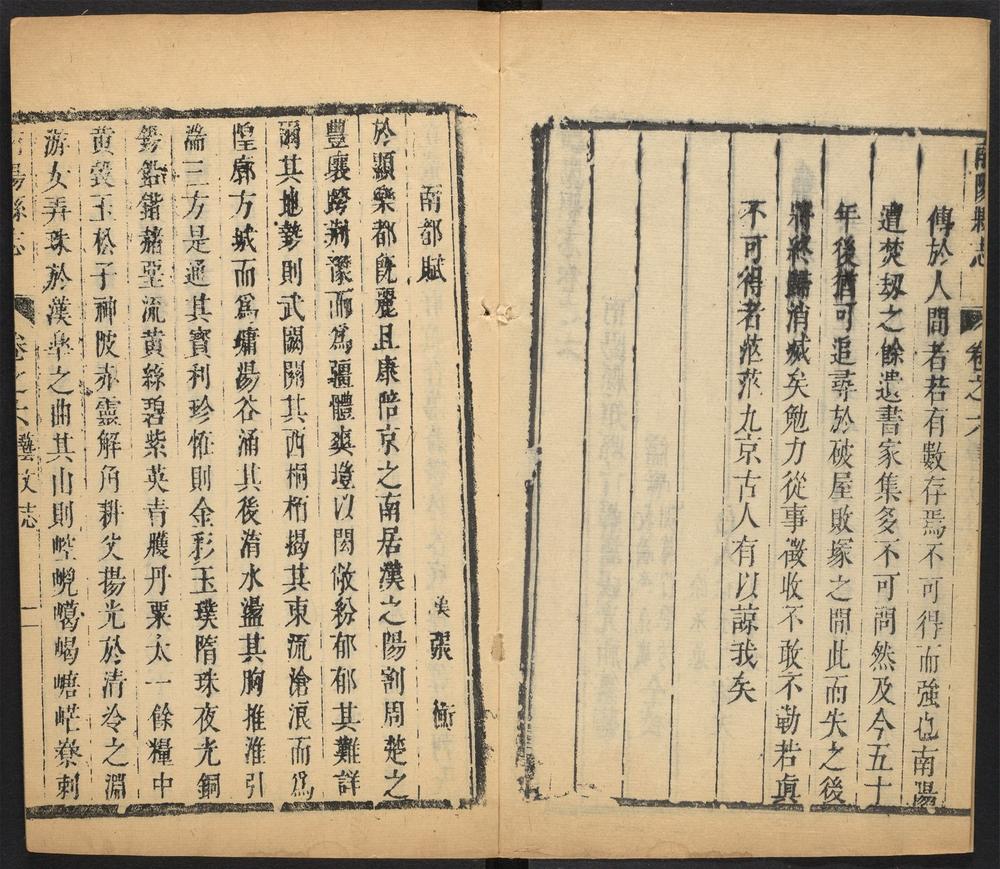 南陽縣志
卷之六
傳於人間者若有數存焉不可得而強也南陽
遭焚刼之餘遺書家集多不可問然及今五十
年後猶可追尋於破屋敗冢之間此而失之後
將終歸消滅矣勉力從事徵收不敢不勤若眞
不可得者茫茫九京古人有以諒我矣
南都賦
漢張衡
於顯樂都旣麗且康陪京之南居漢之陽割周楚之
豐壤跨荆豫而爲疆體爽塏以閑敞紛郁郁其難詳
爾其地勢則武闕關其西桐栢揭其東流滄浪而爲
隍廓方城而爲墉湯谷涌其後淯水盪其胸推淮引
湍三方是通其寶利珍恠則金彩玉璞隋珠夜光銅
錫鉛鍇赭堊流黃綠碧紫英青雘丹粟太一餘糧中
黃瑴玉松子神陂赤靈解角耕父揚光於清泠之淵
游女弄珠於漢臯之曲其山則崆㟅嶱嵑嵣㟐寮剌
陽縣志
卷之六
藝文志
一